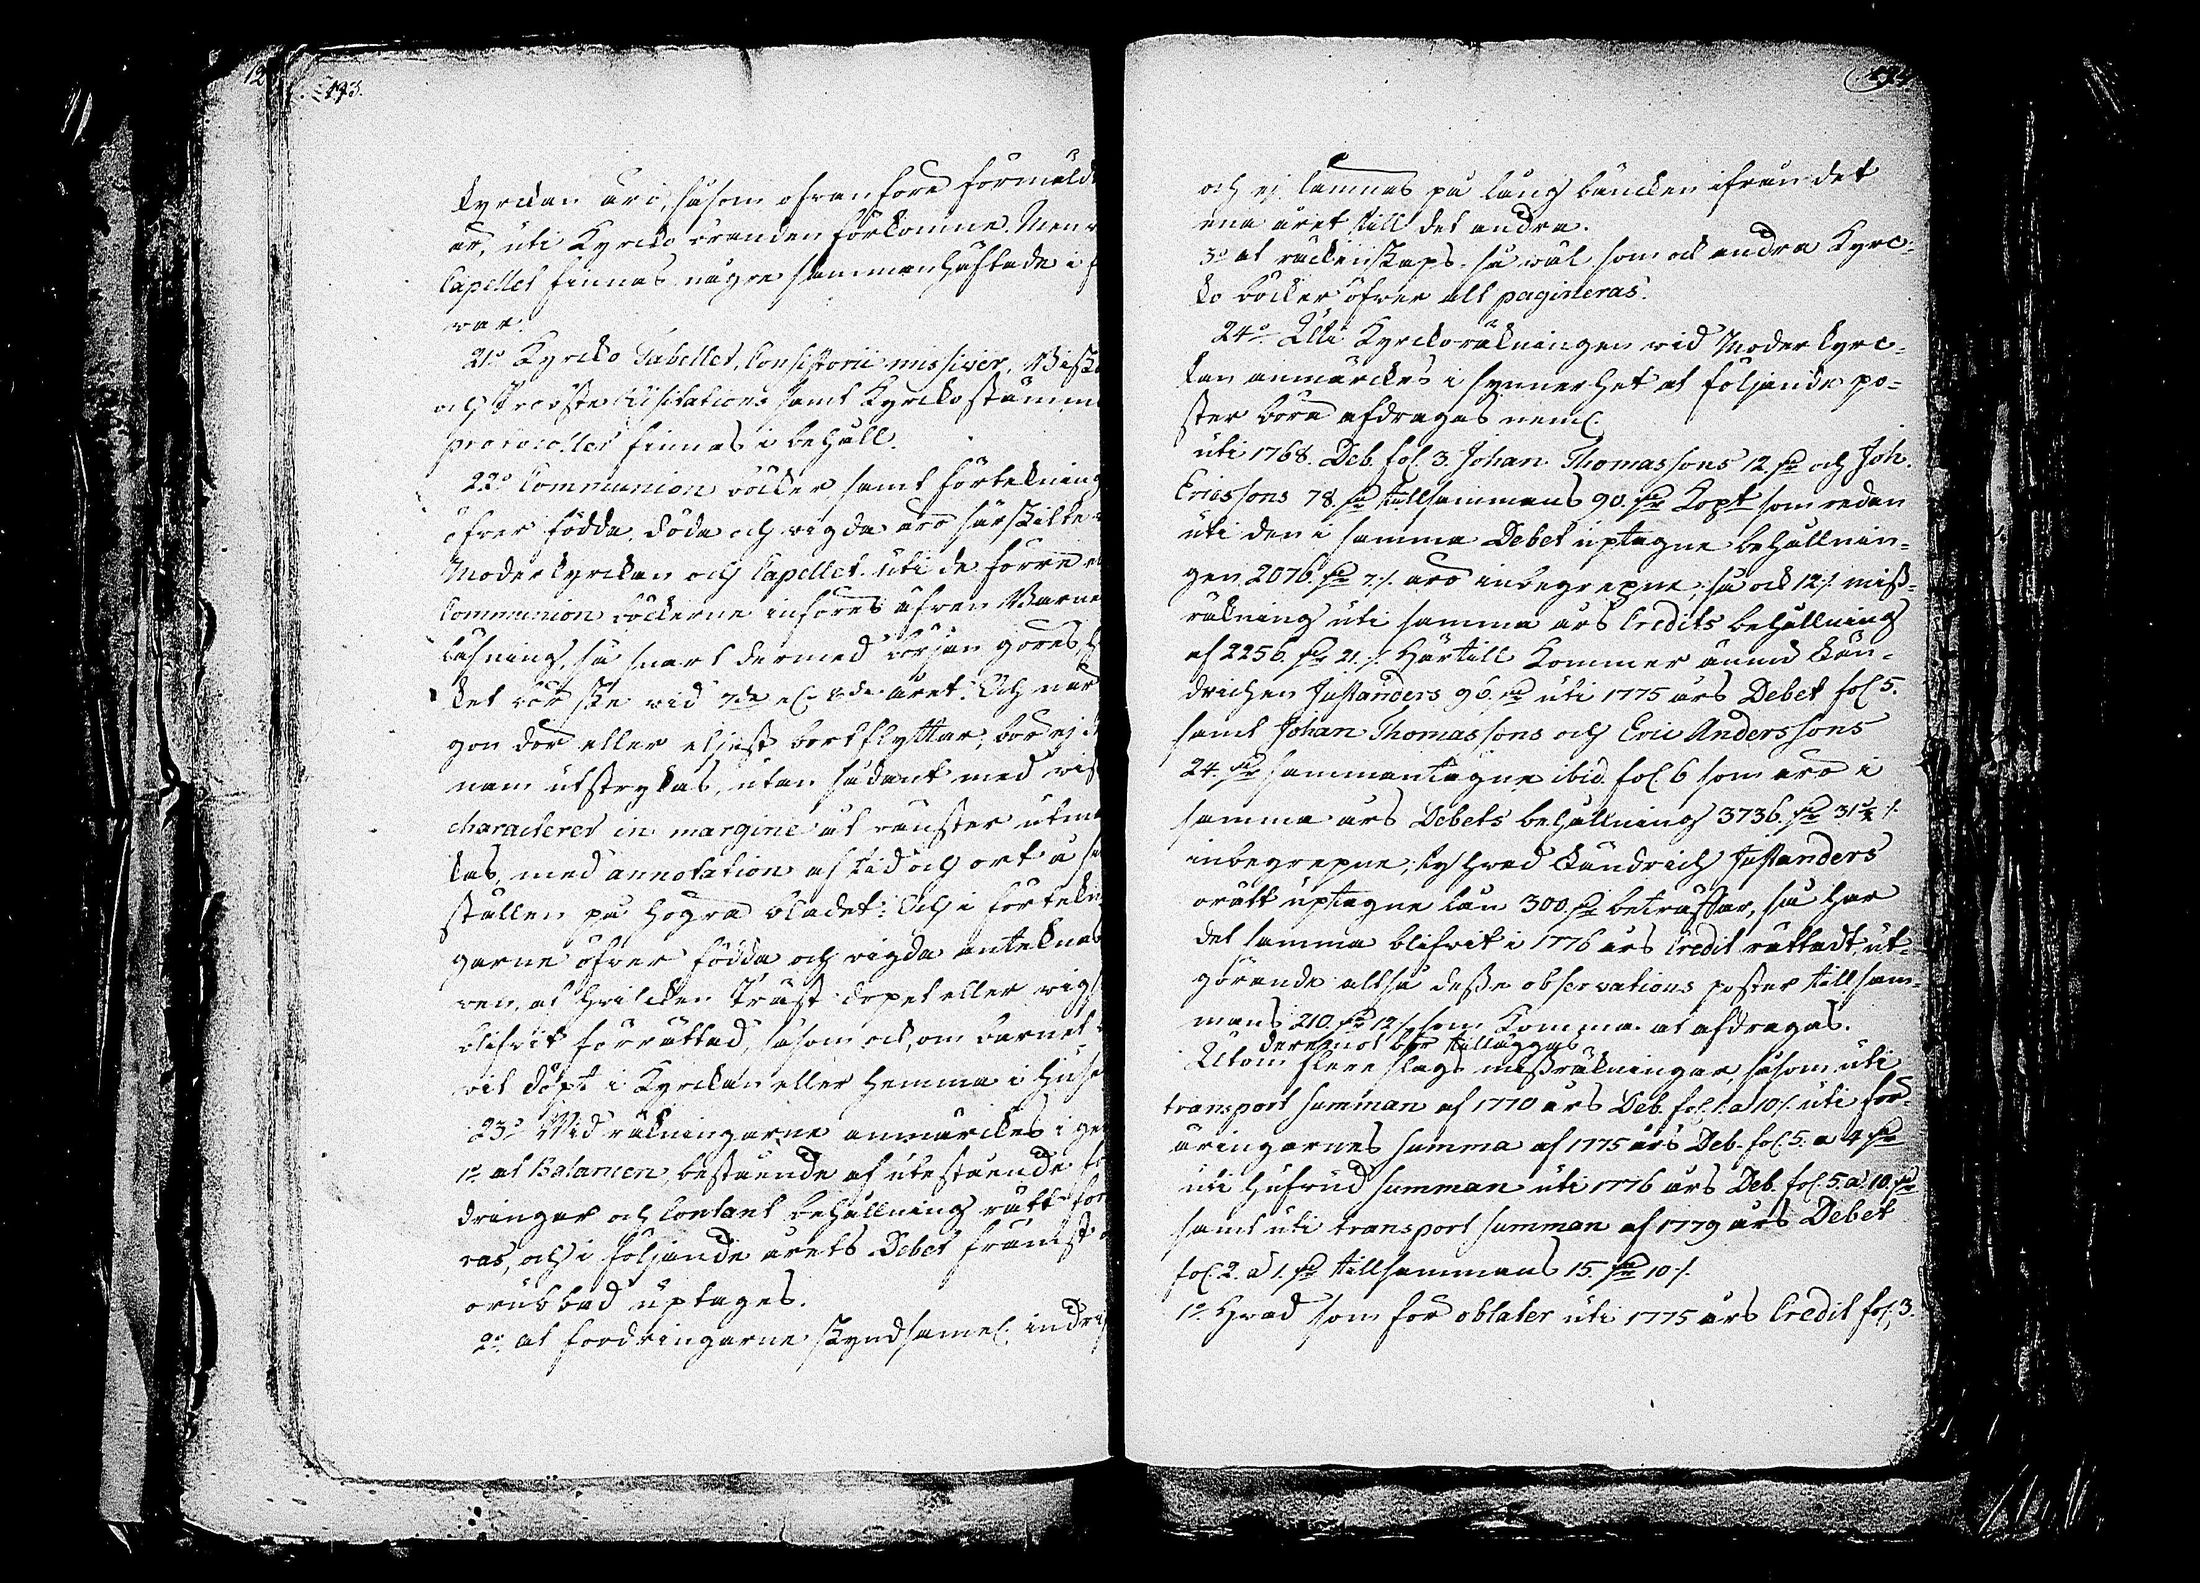 193.
kyrckan äro, såsom ofvanföre förmäldt
är, uti Kyrcko branden förkomne. Men
Capellet finnas några sammanhäftade i
var.
21:o Kyrcko Tabeller, Consistorii missiver,
och Probste Visitations samt Kyrkostämmo
protocoller finnas i behåll.
22:o Communion böcker samt förtekning
öfver födda, döda och vigda äro särskilte
Moderkyrckan och Capellet. Uti de förre
Communion böckerne införes äfven Barna
läsning, så snart dermed början göres,
ket bör ske vid 7:de el. 8:de året. Och när
gon dör eller eljest bortflyttar, bör ej
nam utstrykas, utan sådant med vis
characterer in margine åt vänster utmä
kas, med annotation af tid och ort å
ställen på högra bladet: Och i förtekn
garne öfver födda och vigda anteknas
ven, af hvilcken Präst dopet eller vig
blifvit förrättad, såsom ock, om barnet
vit döpt i Kyrckan eller hemma i huse
23:o Vid räkningarne anmärckes i
1:o at Balancen, bestående af utestående
dringar och Contant behållning rätt för
ras, och i följande årets Debet främst
orubbad uptages.
2:o at fordringarne skyndsamel. indrif
och ej lämnas på lång bäncken ifrån det
ena året till det andra.
3:o at räckenskaps- så väl som ock andra Kyrc-
ko böcker öfver alt pagineras.
24:o Uti Kyrckoräkningen vid Moderkyrc-
kan anmärckes i synnerhet at följande po-
ster böra afdragas neml.
uti 1768. Deb. fol. 3. Johan Thomassons 12 dr och Joh.
Ericssons 78. dr tillsammans 90. dr Kopt som redan
uti den i samma Debet uptagne behållnin-
gen 2076. dr 7./. äro inbegrepne; så ock 12./. miss-
räkning uti samma års Credits behållning
af 2256. dr 21./. Härtill kommer ännu Län-
drichen Justanders 96. dr uti 1775 års Debet fol. 5.
samt Johan Thomassons och Eric Anderssons
24. dr sammantagne ibid. fol 6 som äro i
samma års Debets behållning 3736. dr 31 /.
inbegrepne; ty hvad Ländrich Justanders
orätt uptagne lån 300. dr beträffar, så har
det samma blifvit i 1776 års Credit rättadt, ut-
görande altså desse observations poster tillsam-
mans 210. dr 12 /. som komma at afdragas.
deremot bör tilläggas
Utom flere slags missräkningar, såsom uti
transport summan af 1770 års Deb. fol. 1. a 10 /. uti för-
äringarnes summa af 1775 års Deb. fol. 5. a 4 dr
uti Hufvud summan uti 1776 års Deb. fol. 5. a 10. dr
samt uti transport summan af 1779 års Debet
fol. 2. a 1. dr tillsammans 15. dr 10 /.
1:o Hvad som för oblater uti 1775 års Credit fol. 3.